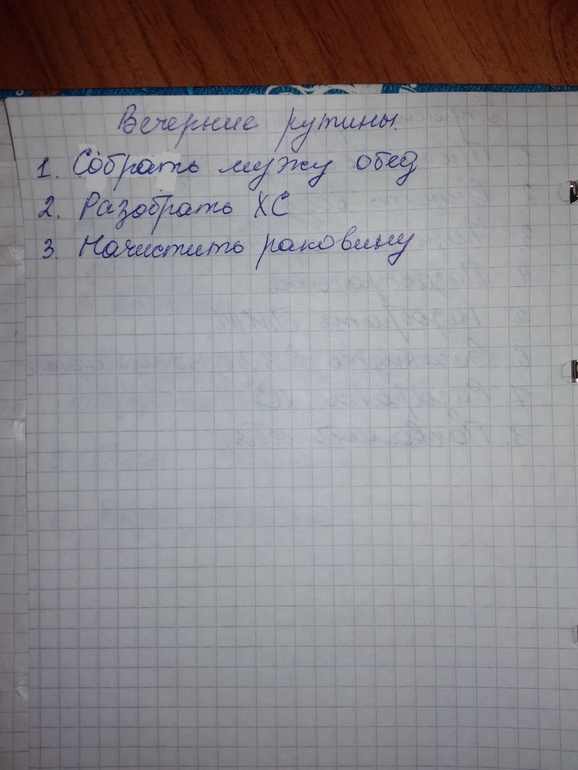 Вечерние рутины.
1. Собрать мужу обед
2. Разобрать ХС
3. Начистить раковину